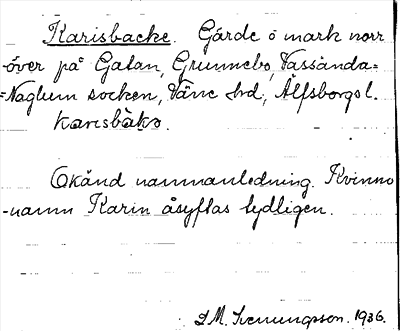 Karisbacke. Gärde o mark norr
över på Gatan, Grunnebo, Vassända=
=Naglum socken, Väne hd, Älfsborgs l.
karısbàkə.
Okänd namnanledning. Kvinno
-namn Karin åsyftas tydligen.
I M. Svenungsson. 1936.